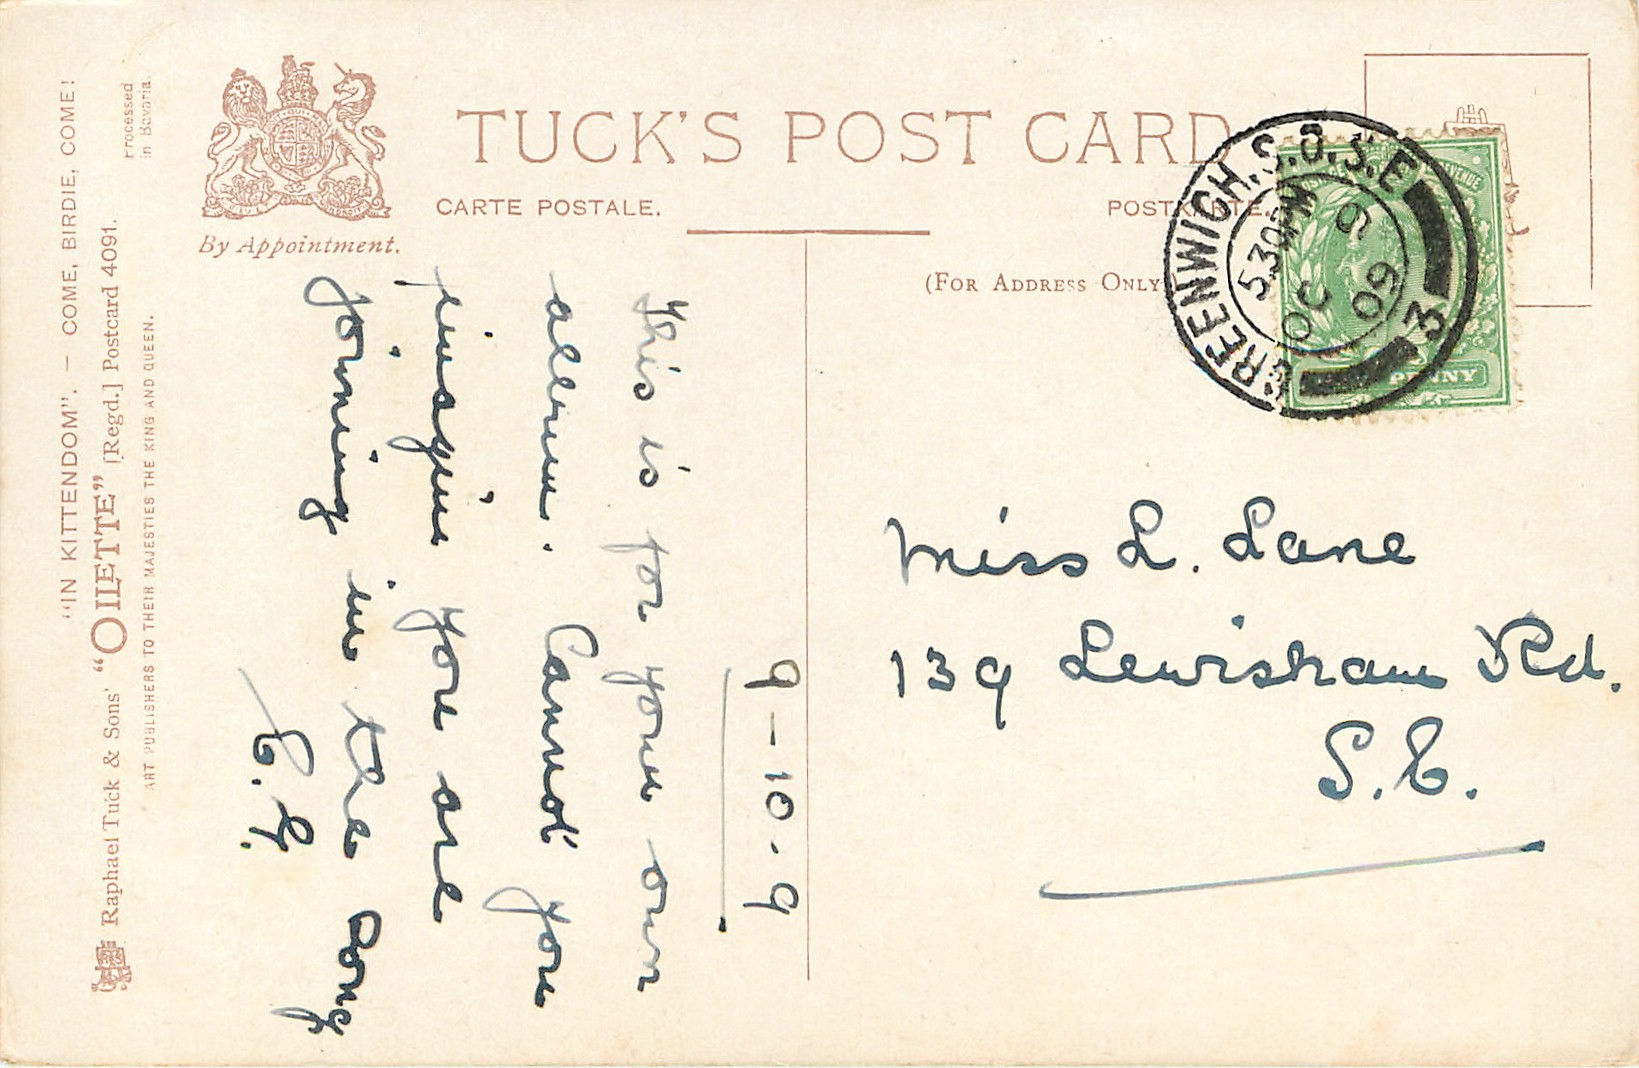 "IN KITTENDOM". — COME, BIRDIE, COME!
Raphael Tuck & Sons' "OILETTE" [Regd.] Postcard 4091.
ART PUBLISHERS TO THEIR MAJESTIES THE KING AND QUEEN.
Processed
in Bavaria
By Appointment.
TUCK'S POST CARD
CARTE POSTALE.
POSTKARTE.
(FOR ADDRESS ONLY
GREENWICH.S.O.S.E
5.30PM
9
OC
09
3
PENNY
9-10.9
This is for your own
album. Cannot you
imagine you are
joining in the song
E. G.
Miss L. Lane
139 Lewisham Rd.
S.E.